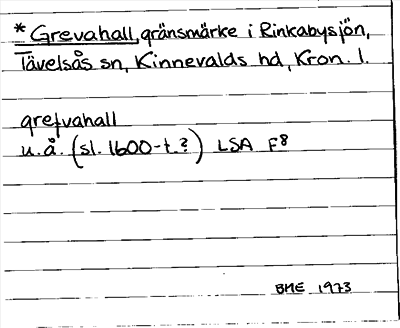 * Grevahall, gränsmärke i Rinkabysjön,
Tävelsås sn, Kinnevalds hd, Kron. l.
grefvahall
u.å. (sl. 1600-t.?) LSA F8
BME 1973